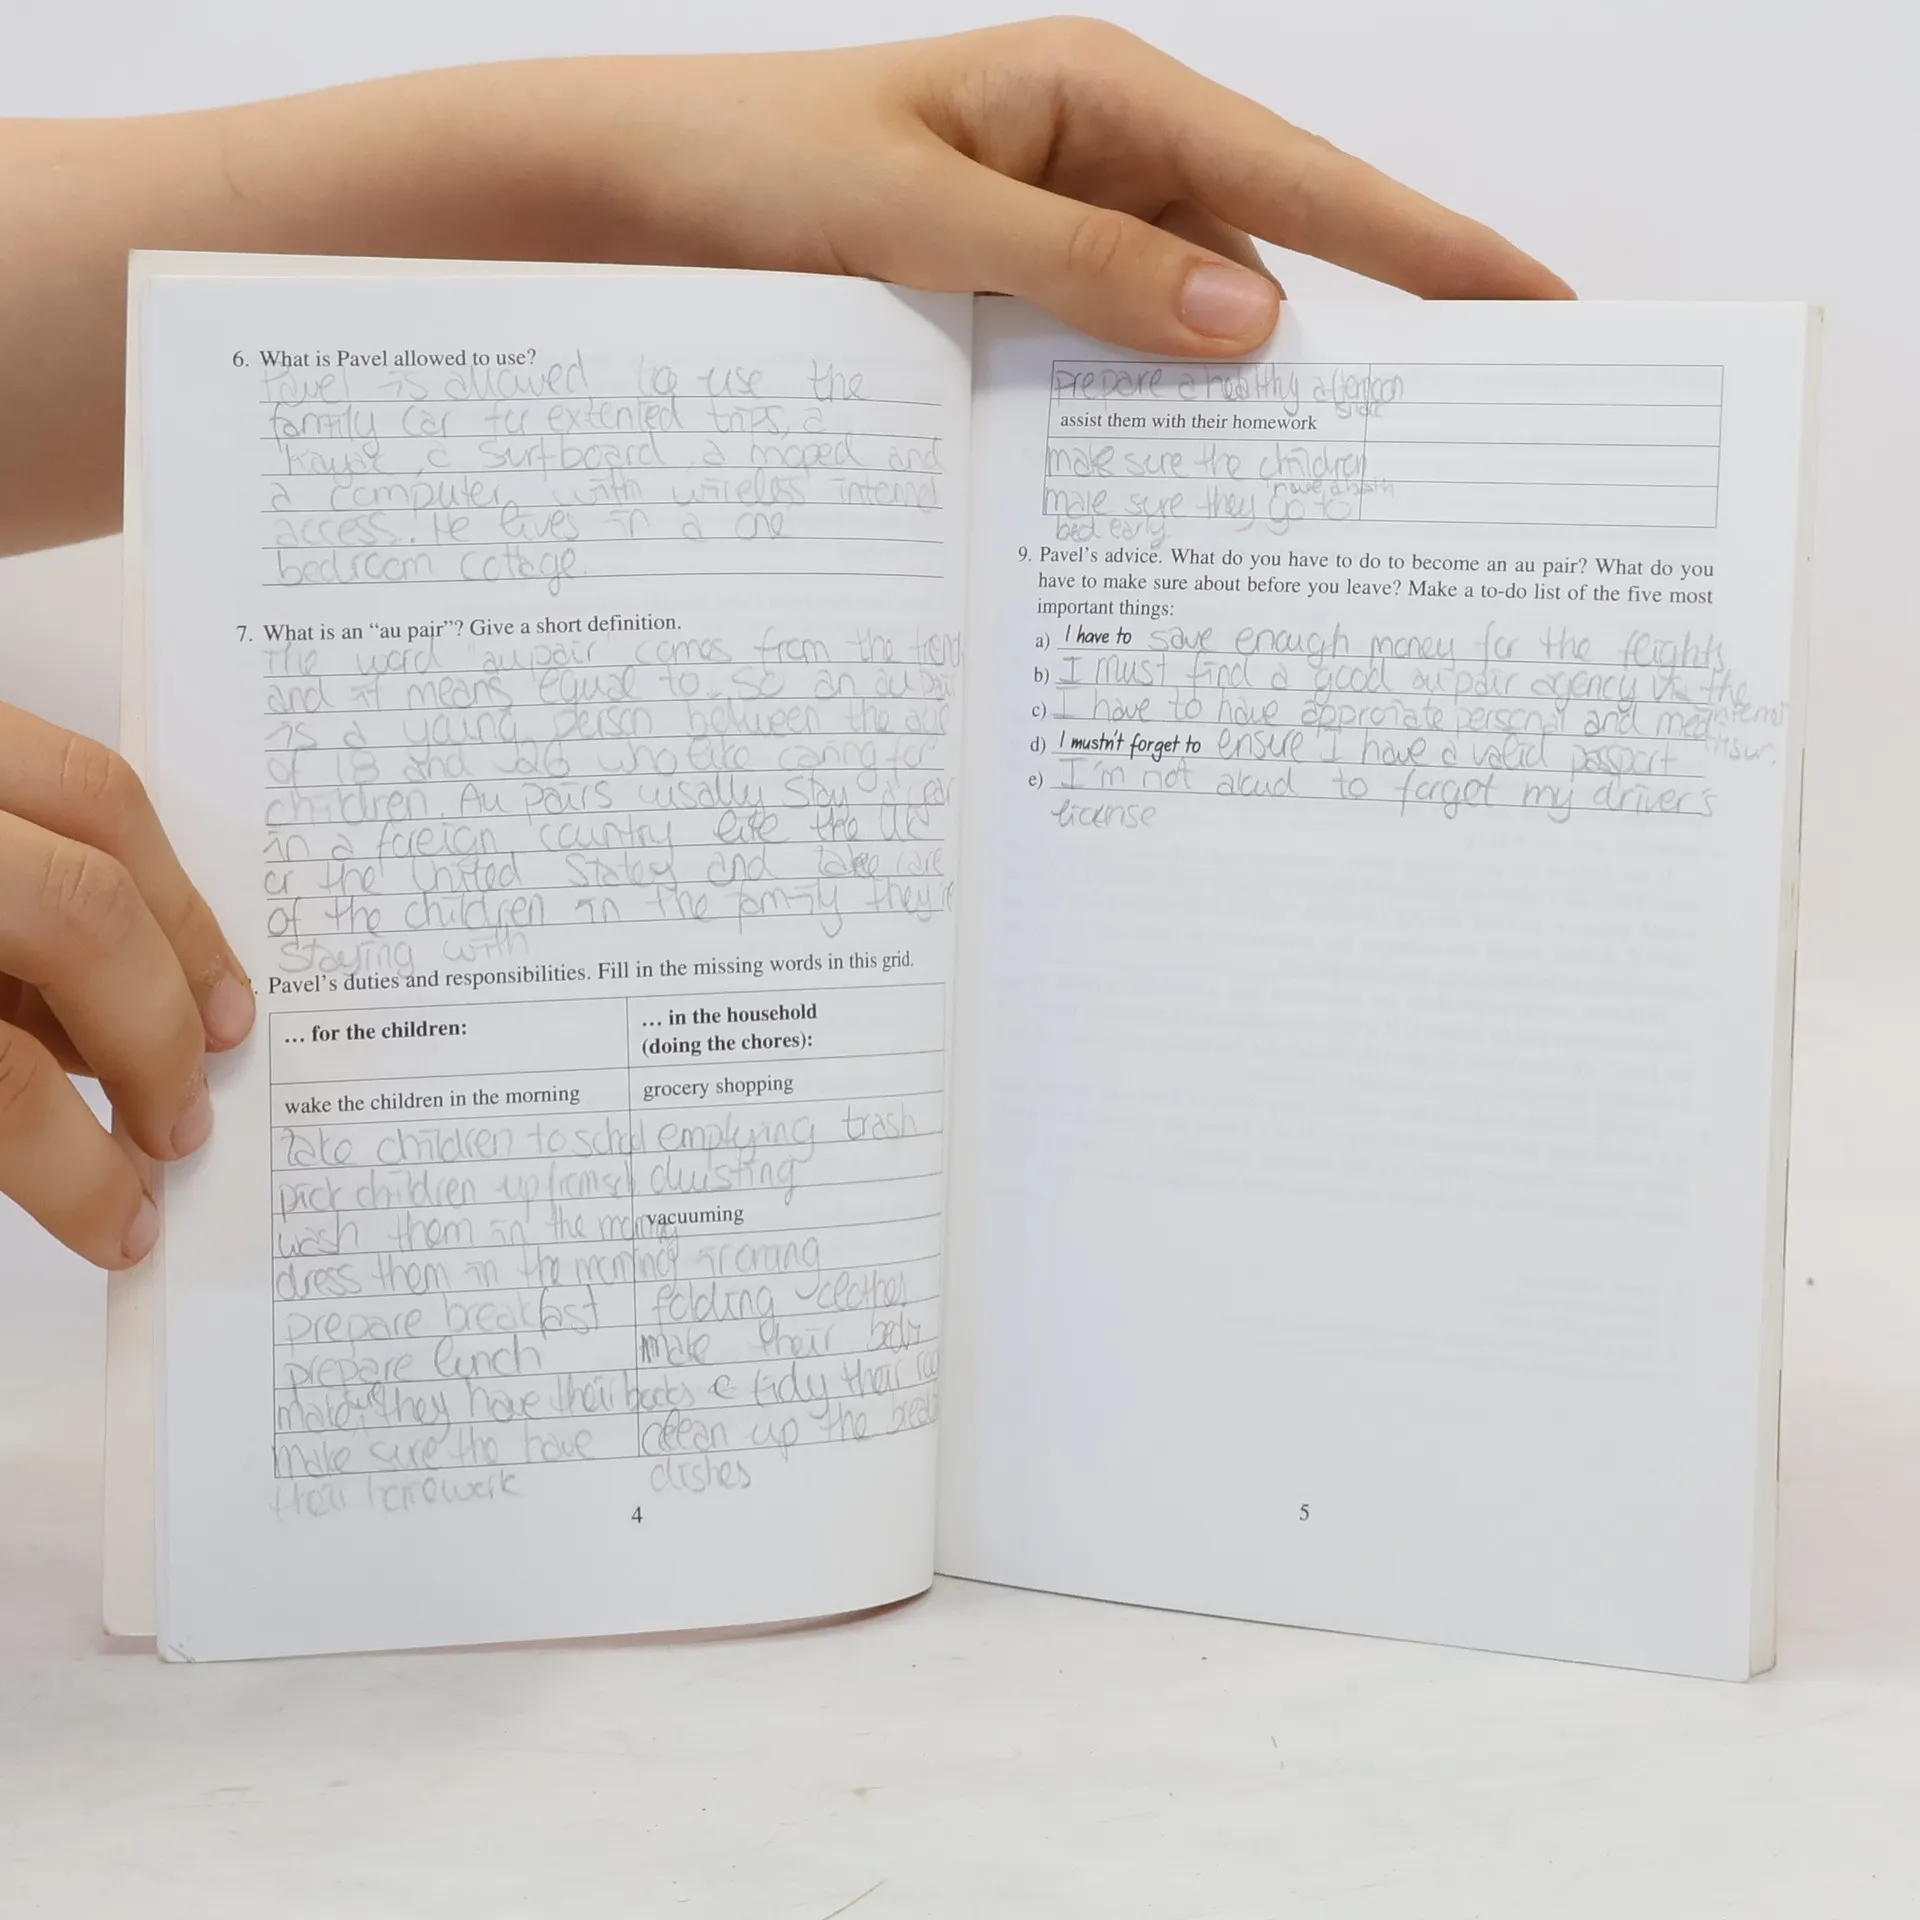 6. What is Pavel allowed to use?
Pavel is allowed to use the
family car for extented trips, a
kayak, a surfboard, a moped and
a computer with wireless internet
access. He lives in a one
bedroom cottage.
7. What is an “au pair”? Give a short definition.
The word "au pair" comes from the
and it means equal to. So an au pair
is a young person between the age
of 18 and 26 who like caring for
children. Au pairs usally stay a year
in a foreign country like the UK
or the United States and take care
of the children in the family they're
staying with
. Pavel’s duties and responsibilities. Fill in the missing words in this grid.
… for the children:
… in the household
(doing the chores):
wake the children in the morning
grocery shopping
take children to school
emptying trash
pick children up from
dusting
wash them in the morning
vacuuming
dress them in the morning
ironing
prepare breakfast
folding clothes
prepare lunch
make their beds
make sure they have their books
tidy their
make sure the have
clean up the
their homework
dishes
4
prepare a healthy afternoon
assist them with their homework
make sure the children
have a bath
make sure they go to
bed early
9. Pavel’s advice. What do you have to do to become an au pair? What do you
have to make sure about before you leave? Make a to-do list of the five most
important things:
a) I have to save enough money for the flights
b) I must find a good au pair agency the internet
c) I have to have approriate personal and insur.
d) I mustn't forget to ensure I have a valid passport
e) I'm not aloud to forget my driver's
license
5